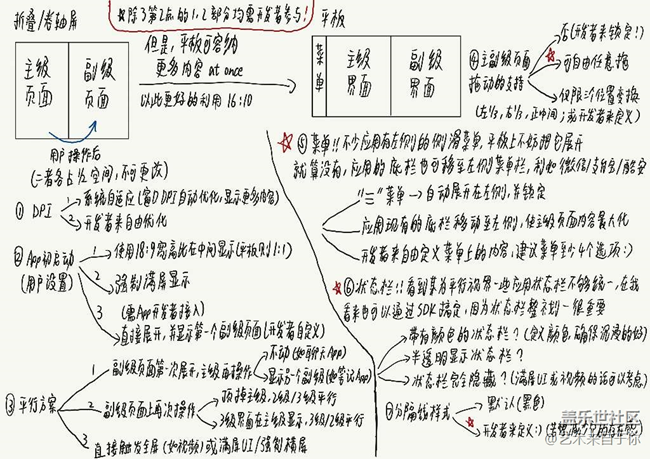 ※除了第2点的1,2部分均需开发者参与!
折叠/卷轴屏
主级页面
副级页面
但是,平板可容纳
更多内容 at once
以此更好的利用16:10
用户操作后
(二者各占½空间,不可更改)
平板
菜单
主级界面
副级界面
④主副级页面
拖动的支持
否(开发者来锁定!)
可自由任意拖
仅限三个位置变换
(左⅓,右⅓,正中间;或开发者来定义)
① DPI
1 系统自适应(窗口DPI自动优化,显示更多内容)
2 开发者来自由优化
② App初启动
(用户设置)
1 使用18:9宽高比在中间显示(平板则1:1)
2 强制满屏显示
3 (需App开发者接入)
直接展开,并显示第一个副级页面(开发者自定义)
③平行方案
1 副级页面第一次展开,主级再操作
不动(如聊天App)
显示另一个副级(如笔记App)
2 副级页面上再次操作
顶掉主级,2级/3级平行
3级界面在主级显示,3级/2级平行
3 直接触发全屏(如视频)或满屏UI/强制横屏
⑤菜单!!不少应用有左侧的侧滑菜单,平板上不妨把它展开
就算没有,应用的底栏也可移至左侧菜单栏,利如微信/支付宝/酷安
"三"菜单→自动展开在左侧,并锁定
应用现有的底栏移动至左侧,使主级页面内容最大化
开发者来自由定义菜单上的内容,建议菜单至少4个选项:)
⑥状态栏!!看到某为平行视界一些应用状态栏不够统一,在我
看来也可以通过SDK搞定,因为状态栏整齐划一很重要
带有颜色的状态栏?(定义颜色,确保沉浸的好)
半透明显示状态栏?
状态栏完全隐藏?(满屏UI或视频的话可以考虑)
⑦分隔线样式
默认(黑色)
开发者来定义:)
盖乐世社区
@艺术来自于你